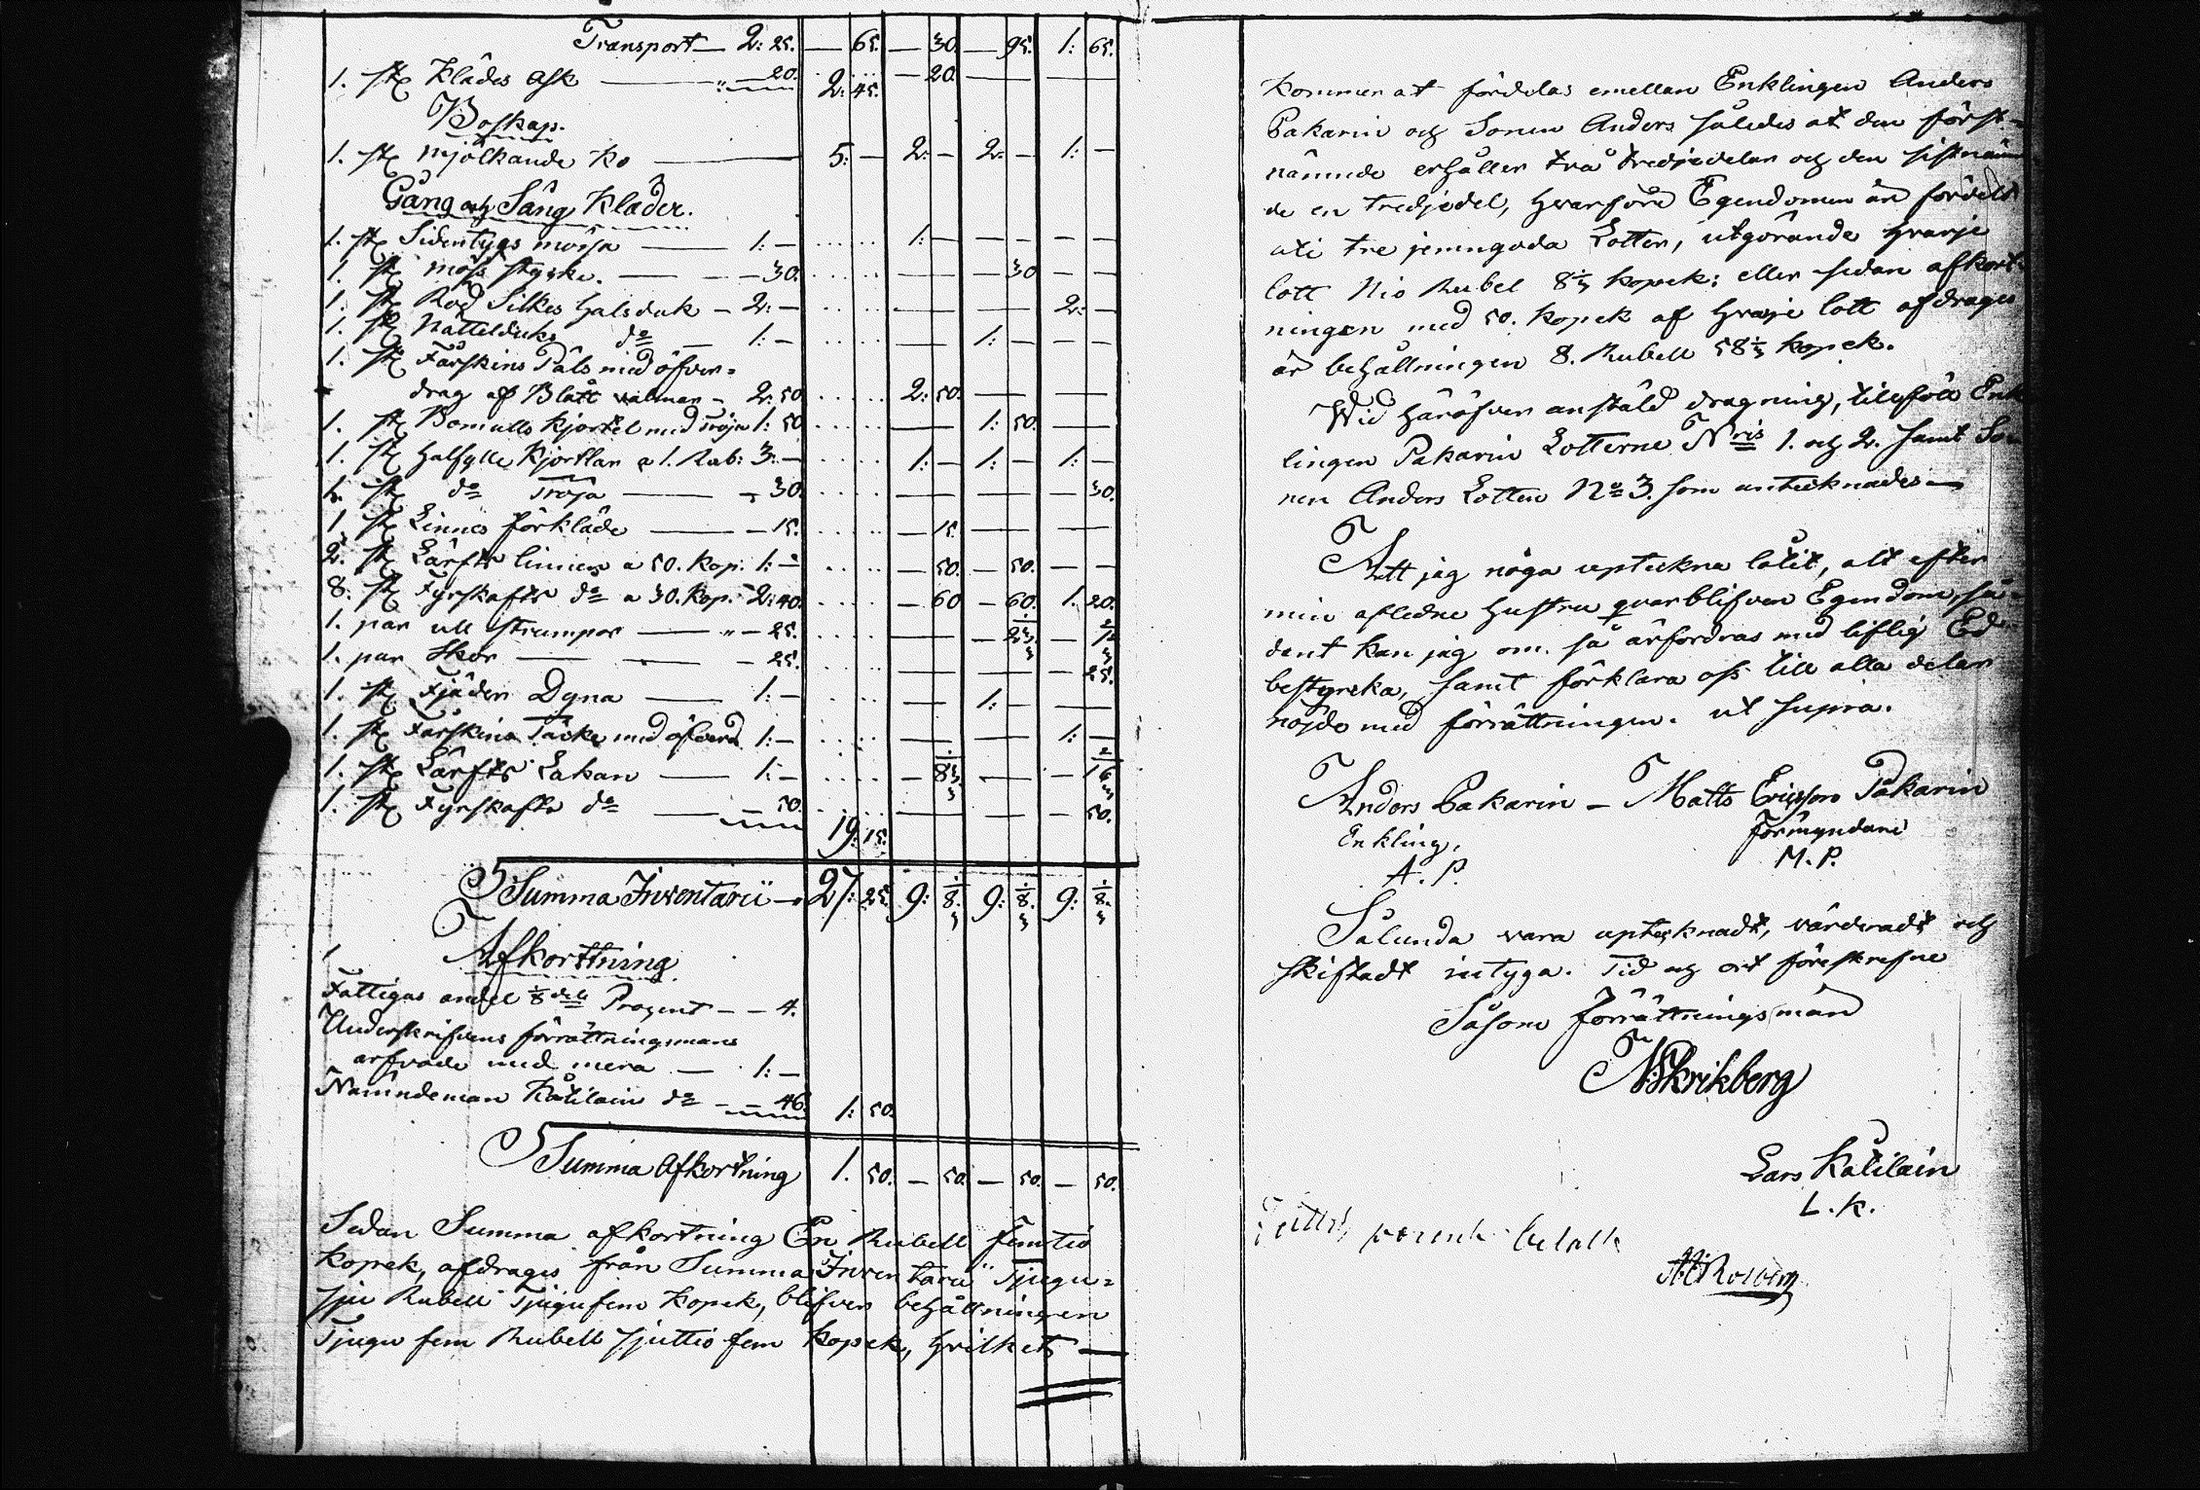 Transport — 2: 25. — 65. — 30. — 95. 1: 65.
1. st. Klädes Ask — " — 20. 2: 45. — 20. — —
Boskap.
1. st. mjölkande Ko — 5: — 2: — 2: — 1: —
Gång och Säng Kläder.
1. st. Sidentygs mössa — 1: — 1: — — — — —
1. st. möss stycke. — — 30. — — 30 — —
1. st. Röd Silkes halsduk — 2: — — — 2: —
1. st. Nattelduks do — 1: — — 1: — —
1. st. Fårskins Päls med öfver=
drag af Blått valmar — 2: 50 2: 50. — —
1. st. Bomulls Kjortel med Tröja 1: 50 — 1: 50. —
1. st. Halfylle Kjortlar a 1. Rub: 3: — 1: — 1: — 1: —
1. st. do Tröja — 30. — — — 30.
1. st. Linnes förkläde — 15. — 15. — —
2. st. Lärfts linnen a 50. Kop: 1: — — 50. — 50. — —
8. st. Fyrskafts do a 30. Kop. 2: 40. — 60 — 60. 1. 20.
1. par ull strumpor — " — 25.
1. par Skor — — 25. — — — 25.
1. st. Fjäder Dyna — 1: — — 1: — —
1. st. Fårskins Täcke med öfverd. 1: — — — 1: —
1. st. Lärfts Lakan — 1: — — 8 1/3 — — 16 2/3
1. st. Fyrskafts do — 50. 19: 15. — — — 50.
Summa Inventarii — 27: 25. 9: 8 1/3 9: 8 1/3 9: 8 1/3
Afkortning
Fattigas andel 1/8 dels Procent — — 4.
Underskrifvens förrättningsmans
arfvode med mera — 1: —
Nämndeman Kätilain do — 46. 1: 50.
Summa Afkortning 1. 50. — 50. — 50. — 50.
Sedan Summa afkortning En Rubell femtio
Kopek, afdrages från Summa Inventarii Tjugu=
sju Rubell Tjugufem Kopek, blifver behållningen
Tjugu fem Rubell sjuttio fem Kopek, hvilket —
Kommer at fördelas emellan Enklingen Anders
Pakarin och Sonen Anders således at den först=
nämnde erhåller två tredjedelar och den sistnämn
de en tredjedel, hvarföre Egendomen är fördeld
uti tre jemngoda Lotter, utgörande hvarje
lott Nio Rubel 8 1/3 Kopek: eller sedan afkort=
ningen med 50. Kopek af hvarje lott afdrages
är behållningen 8. Rubell 58 1/3 Kopek.
Wid häröfver anstäld dragning, tillföll Enk
lingen Pakarin Lotterne Nris 1. och 2. samt So=
nen Anders Lotten No 3. som antecknades —
Att jag noga uptekna låtit, alt efter
min afledne hustru qvarblifven Egendom, så=
dant kan jag om så ärfordras med liflig Ed
bestyrka, samt förklara oss till alla delar
nöjde med förrättningen. ut supra.
Anders Pakarin — Matts Ericsson Pakarin
Enkling, Förmyndare
A. P. M. P.
Sålunda vara uptecknadt, värderadt och
skiftadt intyga. Tid och ort föreskrefne
Såsom förrättningsmän
Skrikberg
Lars Kätilain
L. K.
procent betalt